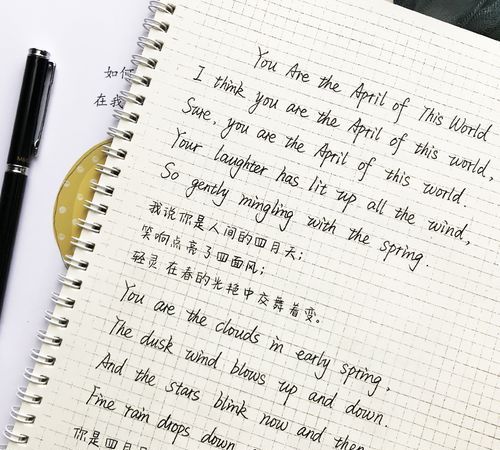 如何
在我
You Are the April of This World
I think you are the April of this world,
Sure, you are the April of this world.
Your laughter has lit up all the wind,
So gently mingling with the spring.
我说你是人间的四月天;
笑响点亮了四面风;
轻灵在春的光艳中交舞着变。
You are the clouds in early spring,
The dusk wind blows up and down.
And the stars blink now and then
Fine rain drops down
你是四月